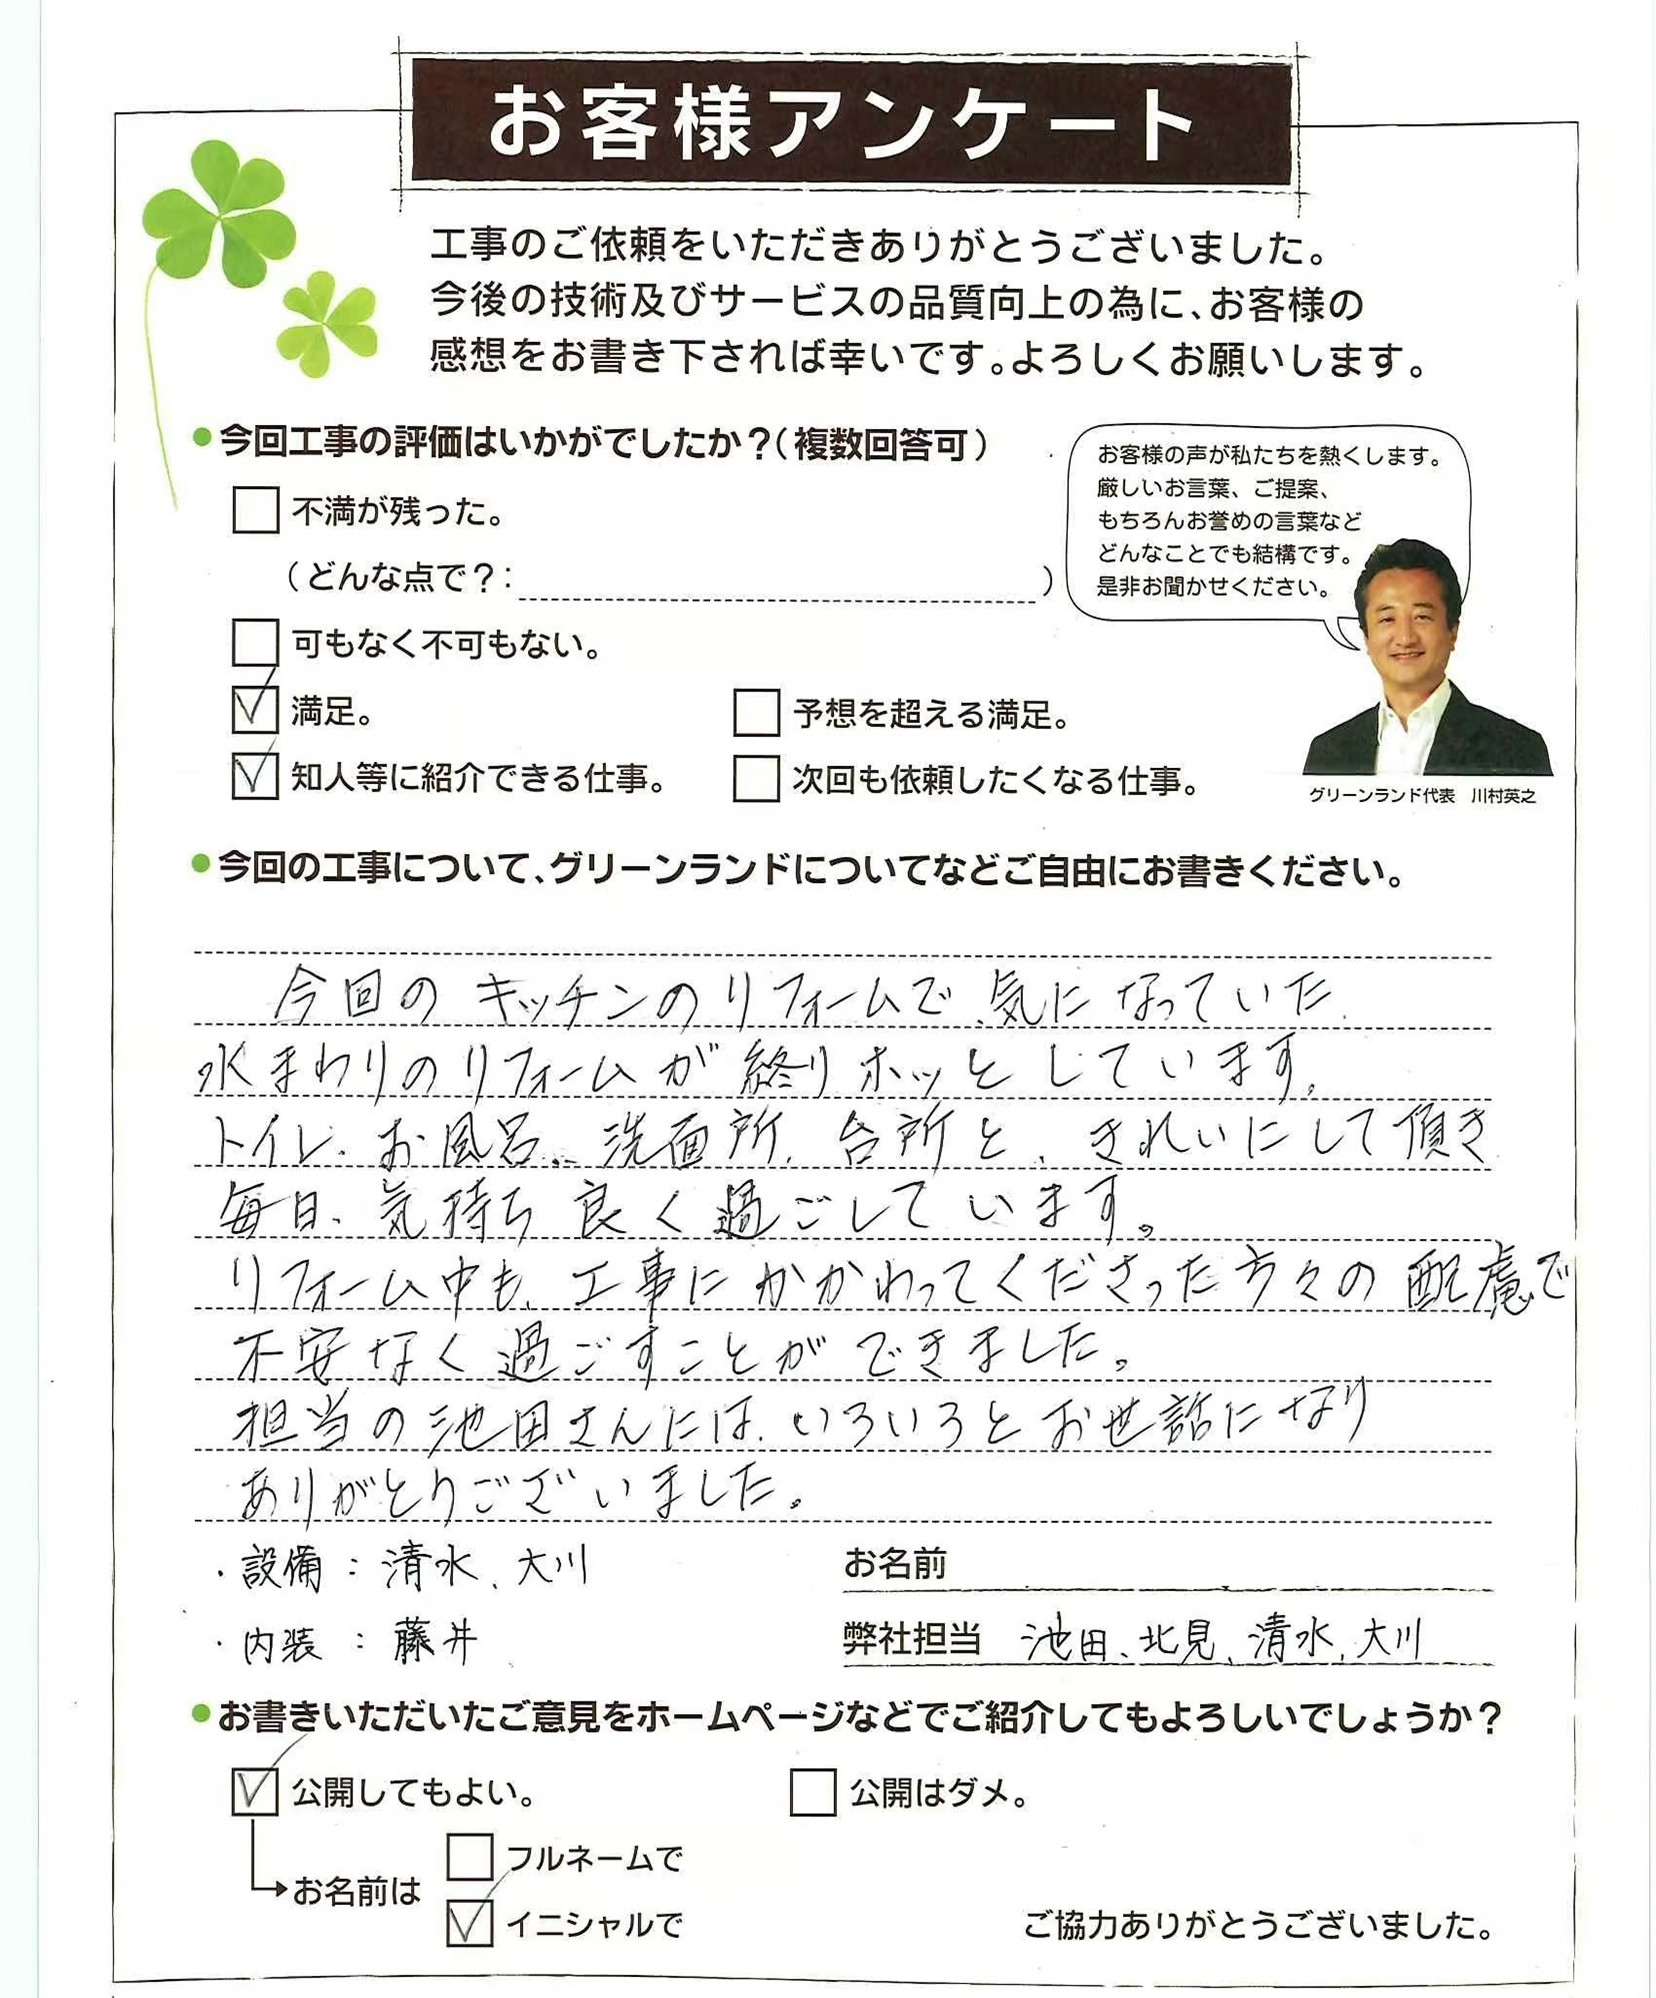 お客様アンケート
工事のご依頼をいただきありがとうございました。
今後の技術及びサービスの品質向上の為に、お客様の
感想をお書き下されば幸いです。よろしくお願いします。
今回工事の評価はいかがでしたか？（複数回答可）
不満が残った。
（どんな点で？：）
可もなく不可もない。
満足。
予想を超える満足。
知人等に紹介できる仕事。
次回も依頼したくなる仕事。
お客様の声が私たちを熱くします。
厳しいお言葉、ご提案、
もちろんお誉めの言葉など
どんなことでも結構です。
是非お聞かせください。
グリーンランド代表　川村英之
今回の工事について、グリーンランドについてなどご自由にお書きください。
今回のキッチンのリフォームで、気になっていた
水まわりのリフォームが終りホッとしています。
トイレ、お風呂、洗面所、台所と、きれいにして頂き
毎日、気持ち良く過ごしています。
リフォーム中も、工事にかかわってくださった方々の配慮で
不安なく過ごすことができました。
担当の池田さんには、いろいろとお世話になり
ありがとうございました。
・設備：清水、大川
・内装：藤井
お名前
弊社担当　池田、北見、清水、大川
お書きいただいたご意見をホームページなどでご紹介してもよろしいでしょうか？
公開してもよい。
公開はダメ。
お名前は
フルネームで
イニシャルで
ご協力ありがとうございました。